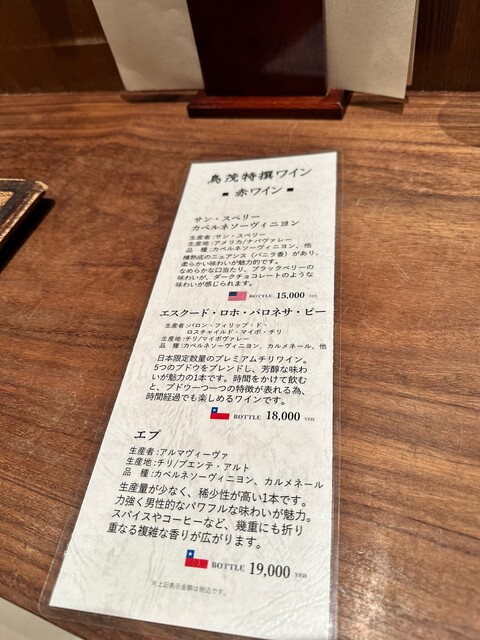 鳥茂特撰ワイン
■ 赤ワイン ■
サン・スペリー
カベルネソーヴィニヨン
生産者:サン・スペリー
生産地:アメリカ/ナパヴァレー
品 種:カベルネソーヴィニヨン、他
樽熟成のニュアンス（バニラ香）があり、
柔らかい味わいが魅力的です。
なめらかな口当たり、ブラックベリーの
味わいが、ダークチョコレートのような
味わいが感じられます。
BOTTLE 15,000 yen
エスクード・ロホ・バロネサ・ピー
生産者:バロン・フィリップ・ド・
ロスチャイルド・マイポ・チリ
生産地:チリ/マイポヴァレー
品 種:カベルネソーヴィニヨン、カルメネール、他
日本限定数量のプレミアムチリワイン。
5つのブドウをブレンドし、芳醇な味わ
いが魅力の1本です。時間をかけて飲む
と、ブドウ一つ一つの特徴が表れる為、
時間経過でも楽しめるワインです。
BOTTLE 18,000 yen
エプ
生産者:アルマヴィーヴァ
生産地:チリ/プエンテ・アルト
品 種:カベルネソーヴィニヨン、カルメネール
生産量が少なく、稀少性が高い1本です。
力強く男性的なパワフルな味わいが魅力。
スパイスやコーヒーなど、幾重にも折り
重なる複雑な香りが広がります。
BOTTLE 19,000 yen
※上記表示金額は税込です。